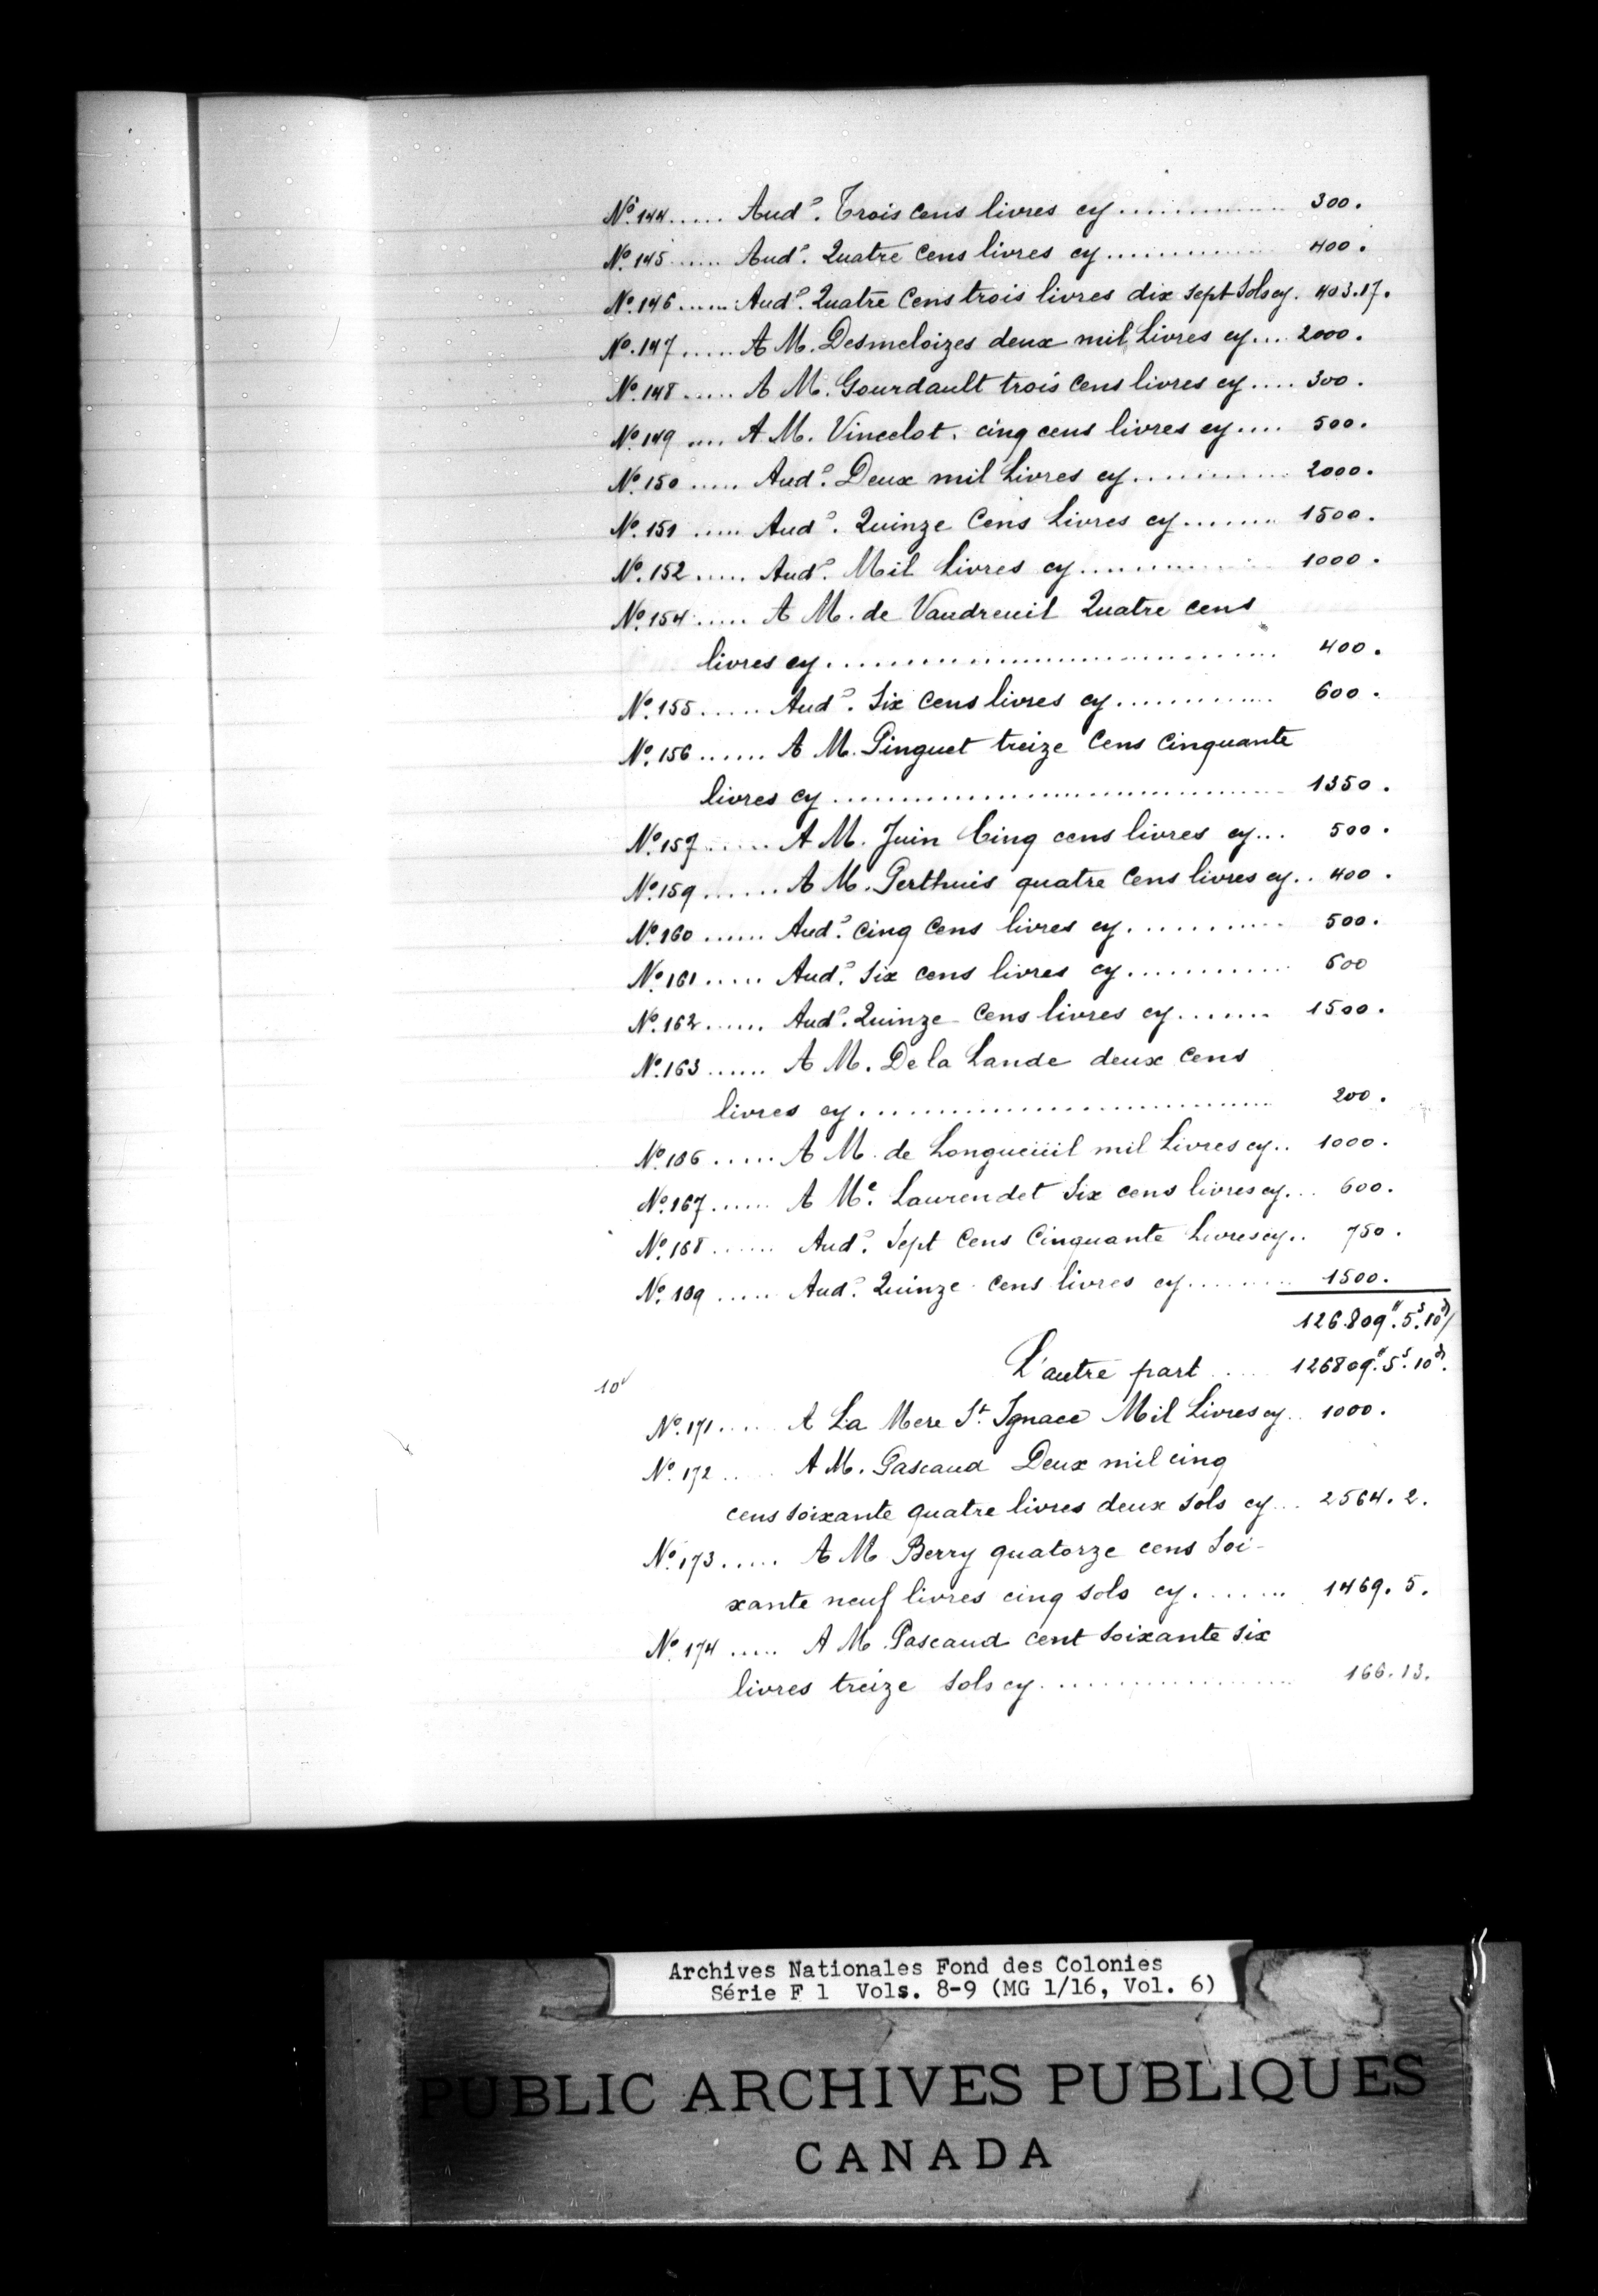 No. 144 ...... Audo. Trois Cens livres cy ............... 300.
No. 145 ...... Audo. Quatre Cens livres cy ............... 400.
No. 146 ...... Audo. Quatre Cens trois livres dix sept sols cy. 403.17.
No. 147 ...... A M. Desmeloizes deux mil Livres cy... 2000.
No. 148 ...... A M. Gourdault trois Cens livres cy.... 300.
No. 149 .... A M. Vincelot. cinq cens livres cy.... 500.
No. 150 ..... Audo. Deux mil Livres cy ............... 2000.
No. 151 ..... Audo. Quinze Cens Livres cy ....... 1500.
No. 152 ..... Audo. Mil Livres cy ............... 1000.
No. 154 ..... A M. de Vaudreuil Quatre cens
livres cy ............................................. 400.
No. 155 ..... Audo. Six Cens livres cy ............. 600.
No. 156 ...... A M. Pinguet treize Cens Cinquante
livres cy ............................................. 1350.
No. 157 ...... A M. Juin Cinq cens livres cy... 500.
No. 159 ...... A M. Perthuis quatre Cens livres cy.. 400.
No. 160 ...... Audo. Cinq Cens livres cy ............ 500.
No. 161 ..... Audo. Six cens livres cy ............. 600
No. 162 ...... Audo. Quinze Cens livres cy ....... 1500.
No. 163 ...... A M. De la Lande deux Cens
livres cy ............................................. 200.
No. 166 ..... A M. de Longueüil mil Livres cy.. 1000.
No. 167 ...... A Me. Laurendet Six cens livres cy... 600.
No. 168 ...... Audo. Sept Cens Cinquante Livres cy.. 750.
No. 169 ..... Audo. Quinze Cens livres cy ......... 1500.
126.809tt. 5s. 10d/
L'autre part ..... 126809tt. 5s. 10d.
10v
No. 171 ..... A La Mere St. Ignace Mil Livres cy.. 1000.
No. 172 ..... A M. Pascaud Deux mil cinq
cens soixante quatre livres deux sols cy... 2564. 2.
No. 173 ..... A M Berry quatorze cens Soi-
xante neuf livres cinq sols cy ....... 1469. 5.
No. 174 ..... A M. Pascaud cent soixante six
livres treize sols cy ..................... 166. 13.
Archives Nationales Fond des Colonies
Série F 1 Vols. 8-9 (MG 1/16, Vol. 6)
PUBLIC ARCHIVES PUBLIQUES
CANADA